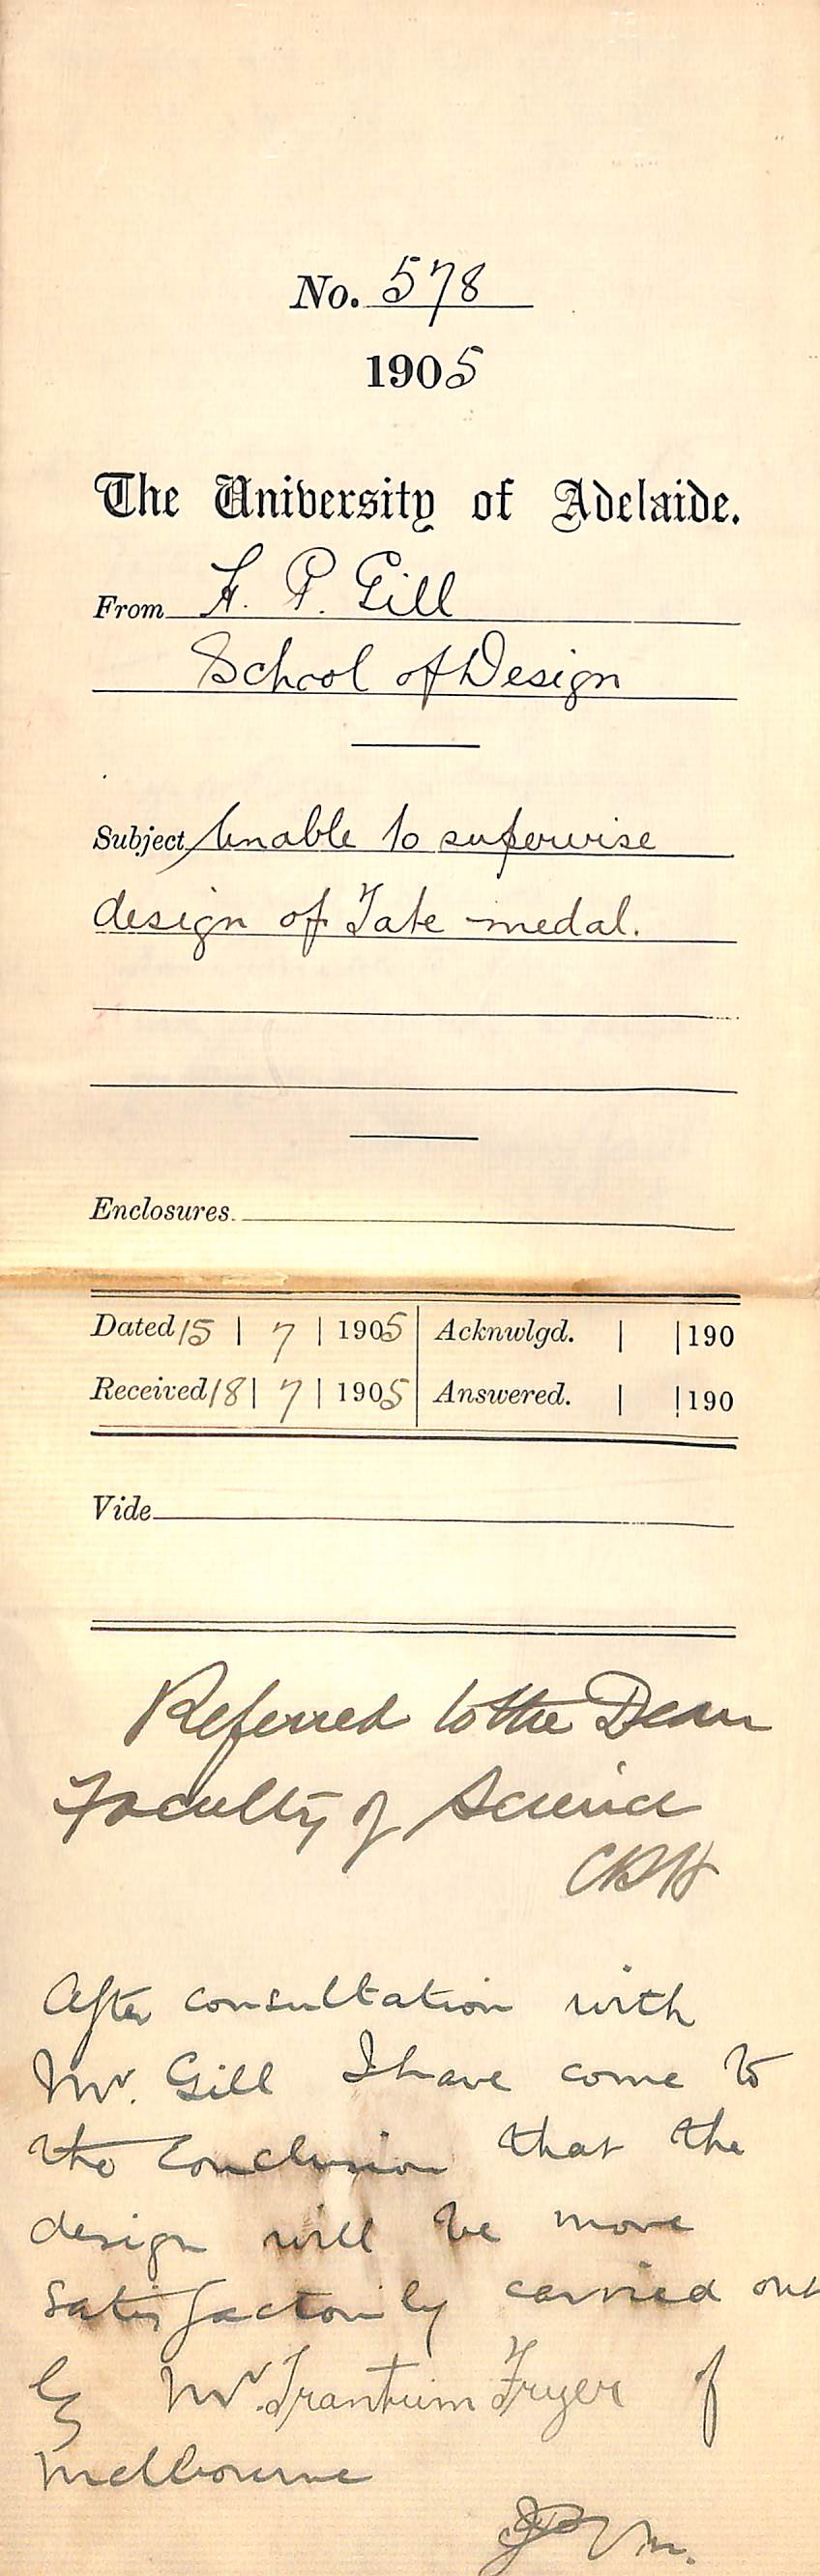 No. 578
1905
The University of Adelaide.
From H. P. Gill
School of Design
Subject Unable to supervise
design of Tate medal.
Enclosures.
Dated 15 | 7 | 1905 Acknwlgd. | |190
Received 18 | 7 | 1905 Answered. | |190
Vide
Referred to the Dean
Faculty of Science
CRH
After consultation with
Mr. Gill I have come to
the conclusion that the
design will be more
satisfactorily carried out
by Mr. Trantum Fryer of
Melbourne